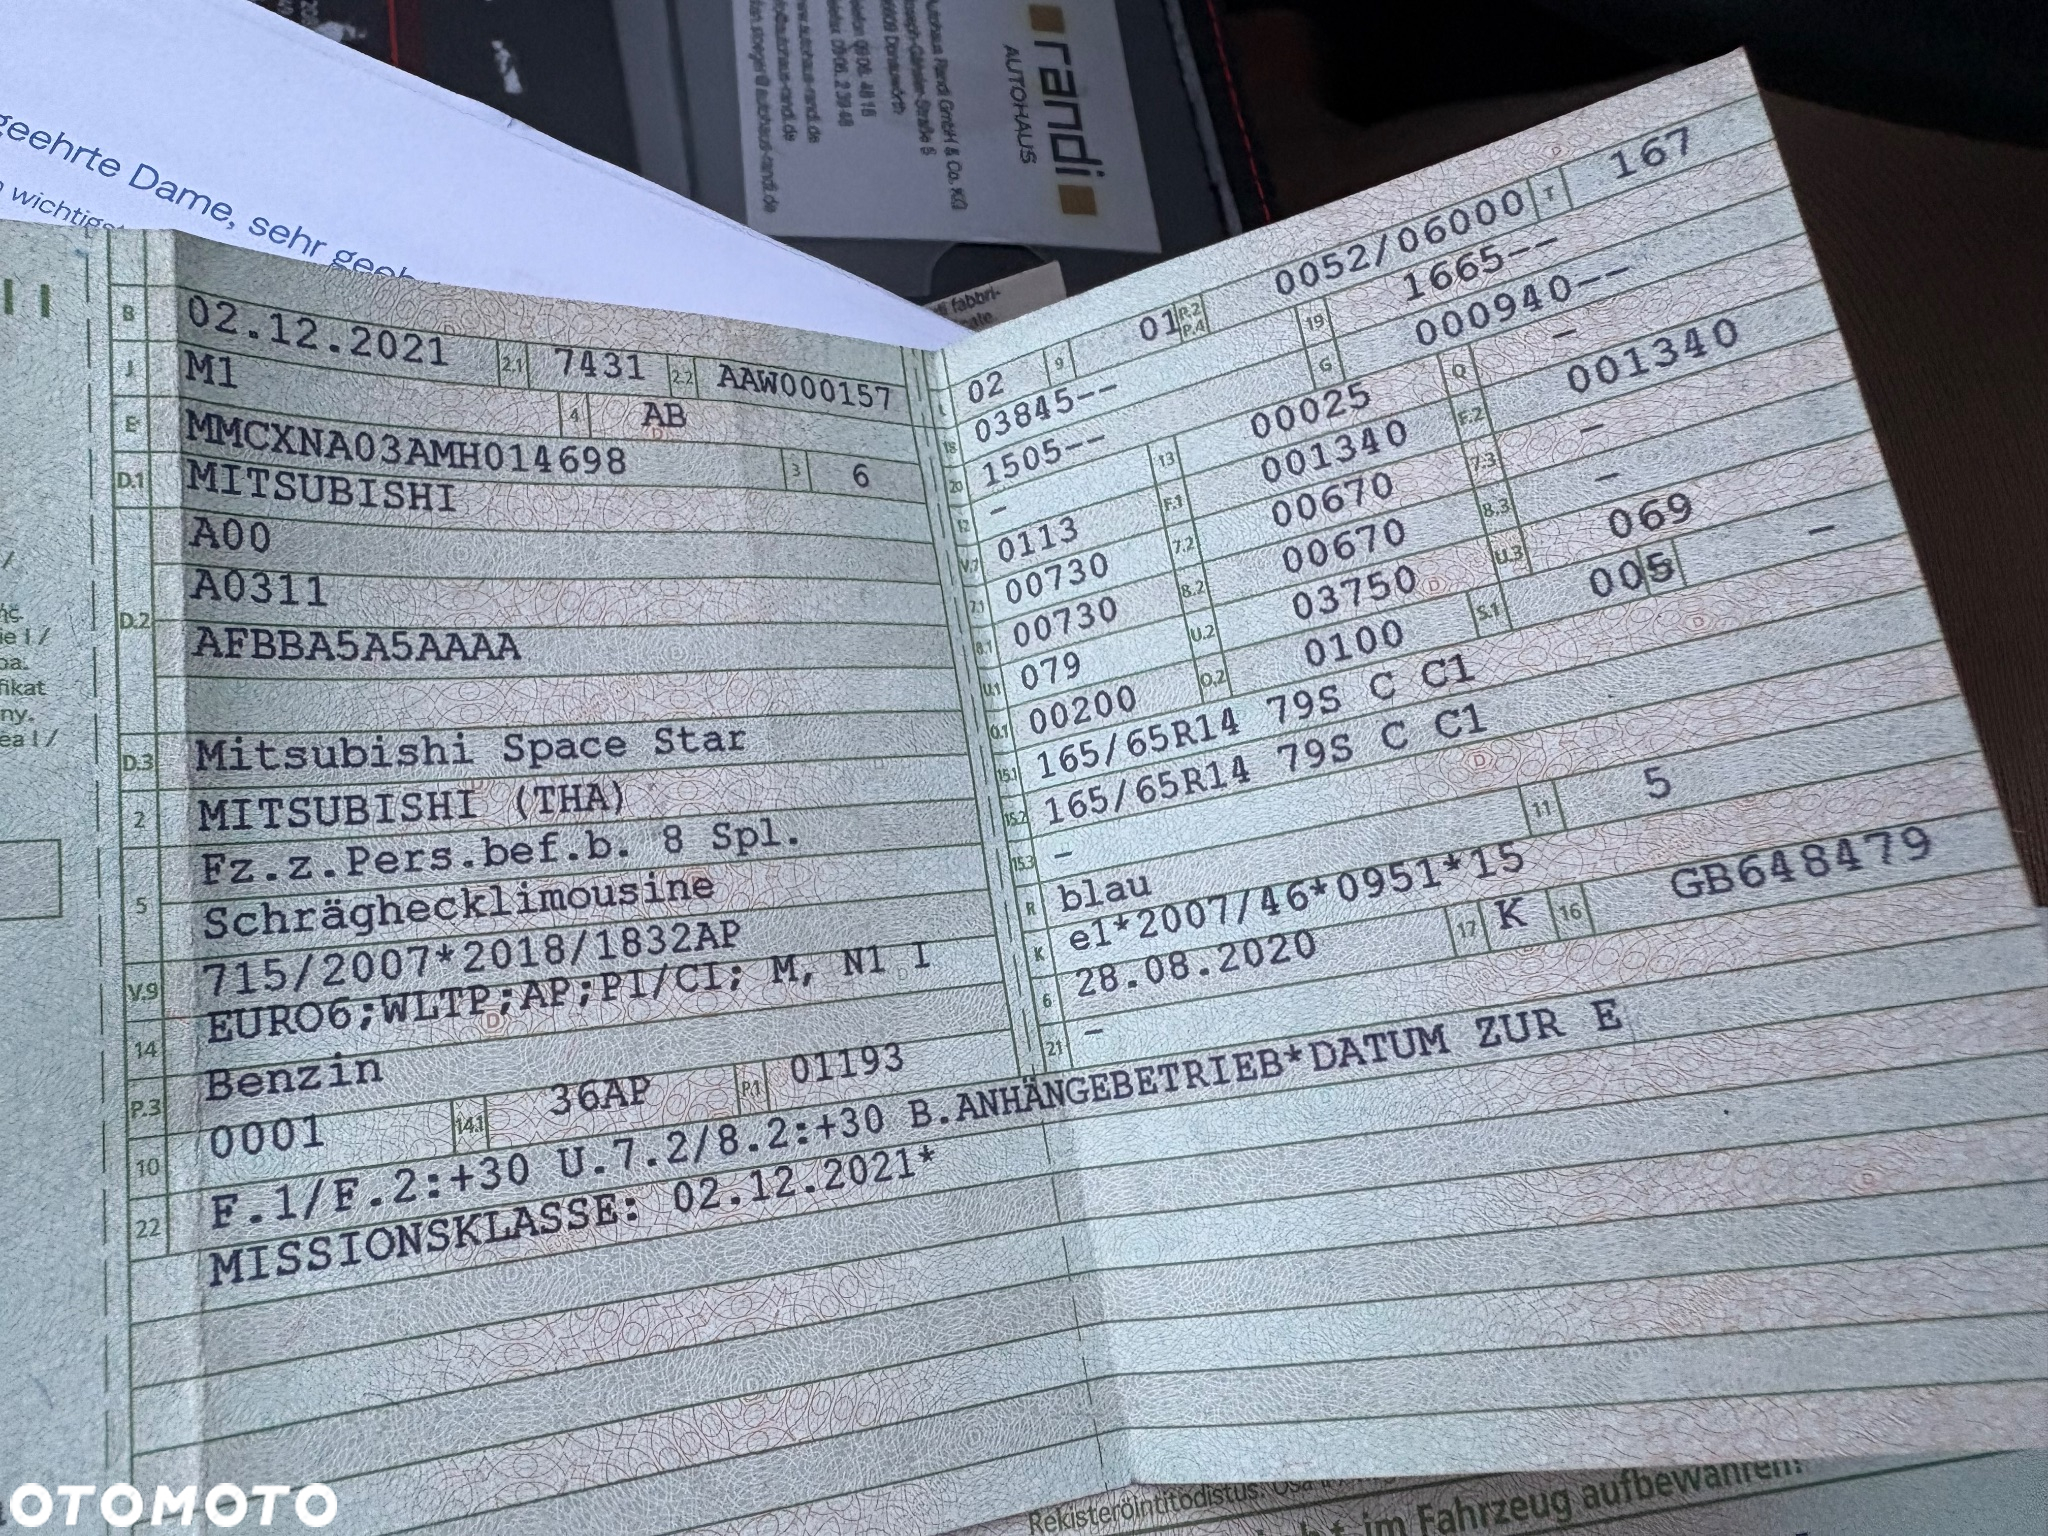 geehrte Dame, sehr geeh
wichtigst
randi
AUTOHAUS
Autohaus Randi GmbH & Co. KG
B 02.12.2021 2.1 7431 2.2 AAW000157
J M1 4 AB
E MMCXNA03AMH014698 3 6
D.1 MITSUBISHI
A00
D.2 A0311
AFBBA5A5AAAA
D.3 Mitsubishi Space Star
2 MITSUBISHI (THA)
Fz.z.Pers.bef.b. 8 Spl.
5 Schräghecklimousine
V.9 715/2007*2018/1832AP
EURO6;WLTP;AP;PI/CI; M, N1 I
14 Benzin
P.3
0001 14.1 36AP P.1 01193
10
22 F.1/F.2:+30 U.7.2/8.2:+30 B.ANHÄNGEBETRIEB*DATUM ZUR E
MISSIONSKLASSE: 02.12.2021*
L 02 9 01 P.2 P.4 0052/06000 T 167
18 03845-- 19 1665--
20 1505-- G 000940--
12 - 13 00025 Q -
V.7 0113 F.1 001340 F.2 001340
7.1 00730 7.2 00670 7.3 -
8.1 00730 8.2 00670 8.3 -
U.1 079 U.2 03750 U.3 069
O.1 00200 O.2 0100 S.1 005 -
15.1 165/65R14 79S C C1
15.2 165/65R14 79S C C1
15.3 -
R blau 11 5
K e1*2007/46*0951*15
6 28.08.2020 17 K 16 GB648479
21 -
Rekisteröintitodistus.
im Fahrzeug aufbewahren!
OTOMOTO